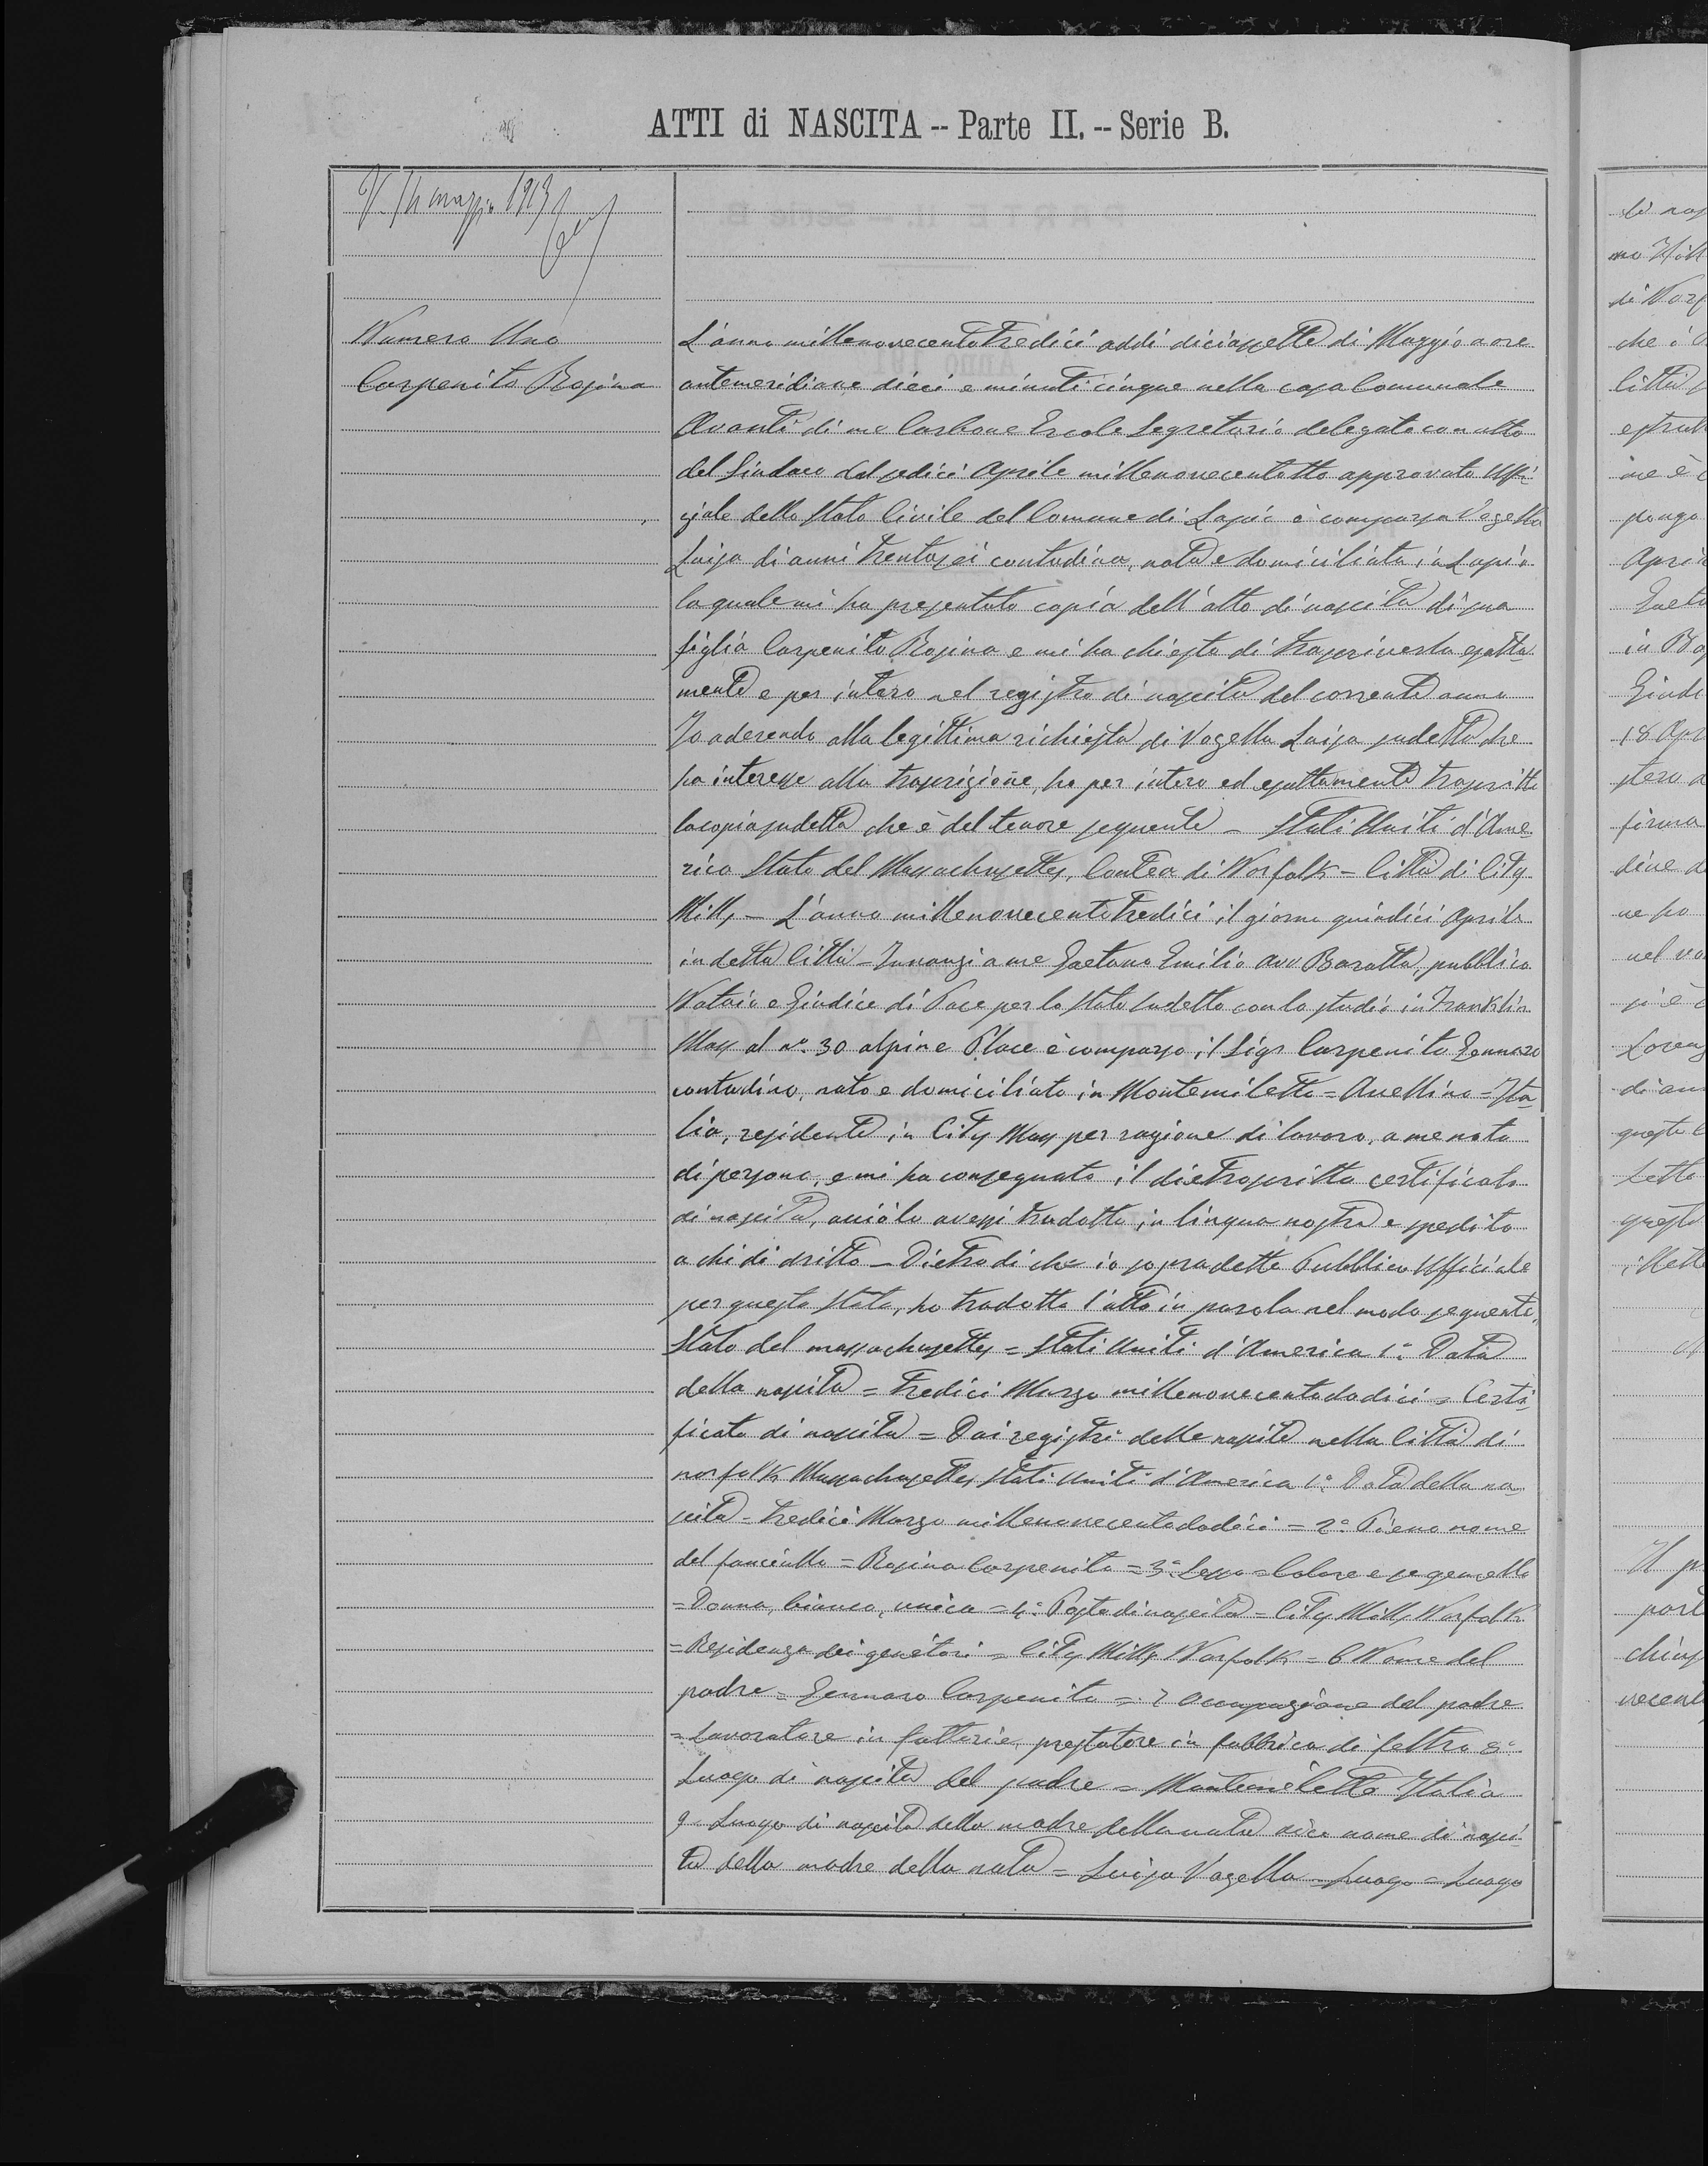 ATTI di NASCITA -- Parte II. -- Serie B.
V. 14 maggio 1913
Numero Uno
Carpenito Rosina
L'anno millenovecentotredici addì diciassette di Maggio a ore
antemeridiane dieci e minuti cinque nella casa Comunale
Avanti di me Carbone Ercole Segretario delegato con atto
del Sindaco del sedici Aprile millenovecentotto approvato Uffi-
ziale dello Stato Civile del Comune di Lapio è comparsa Vagella
Luisa di anni trentasei contadina, nata e domiciliata in Lapio
la quale mi ha presentato copia dell'atto di nascita di sua
figlia Carpenito Rosina e mi ha chiesto di trascriverla esatta-
mente e per intero nel registro di nascita del corrente anno
Io aderendo alla legittima richiesta di Vagella Luisa sudetta che
ha interesse alla trascrizione, ho per intero ed esattamente trascritto
la copia sudetta che è del tenore seguente - Stati Uniti d'Ame-
rica Stato del Massachusettes, Contea di Norfolk = Città di City
Mills - L'anno millenovecentotredici il giorno quindici Aprile
in detta Città - Innanzi a me Gaetano Emilio avv Baratta, pubblico
Notaio e Giudice di Pace per lo Stato sudetto con lo studio in Franklin
Mass al No. 30 alpine Place è comparso il Sigr Carpenito Gennaro
contadino, nato e domiciliato in Montemiletto = Avellino = Ita-
lia, residente in City Mass per ragione di lavoro, a me noto
di persona, e mi ha consegnato il dietroscritto certificato
di nascita, acciò lo avessi tradotto in lingua nostra e spedito
a chi di dritto - Dietro di che io sopradetto Pubblico Ufficiale
per questo Stato, ho tradotto l'atto in parola nel modo seguente,
Stato del massachusettes = Stati Uniti d'America 1° Data
della nascita = Tredici Marzo millenovecentododici = Certi-
ficato di nascita = Dai registri delle nascite nella Città di
norfolk Massachusettes Stati Uniti d'America 1° Data della na-
scita = tredici Marzo millenovecentododici = 2° Pieno nome
del fanciullo = Rosina Carpenito = 3° Sesso = Colore e se gemello
= Donna, bianca, unica = 4° Posto di nascita = City Mills Norfolk
= Residenza dei genitori = City Mills Norfolk = 6 Nome del
padre = Gennaro Carpenito = 7 Occupazione del padre
= Lavoratore in fattorie, prestatore in fabbrica di feltro 8°
Luogo di nascita del padre = Montemiletto Italia
9 Luogo di nascita della madre della nata dico nome di nasci-
ta della madre della nata = Luisa Vagella = Luogo = Luogo